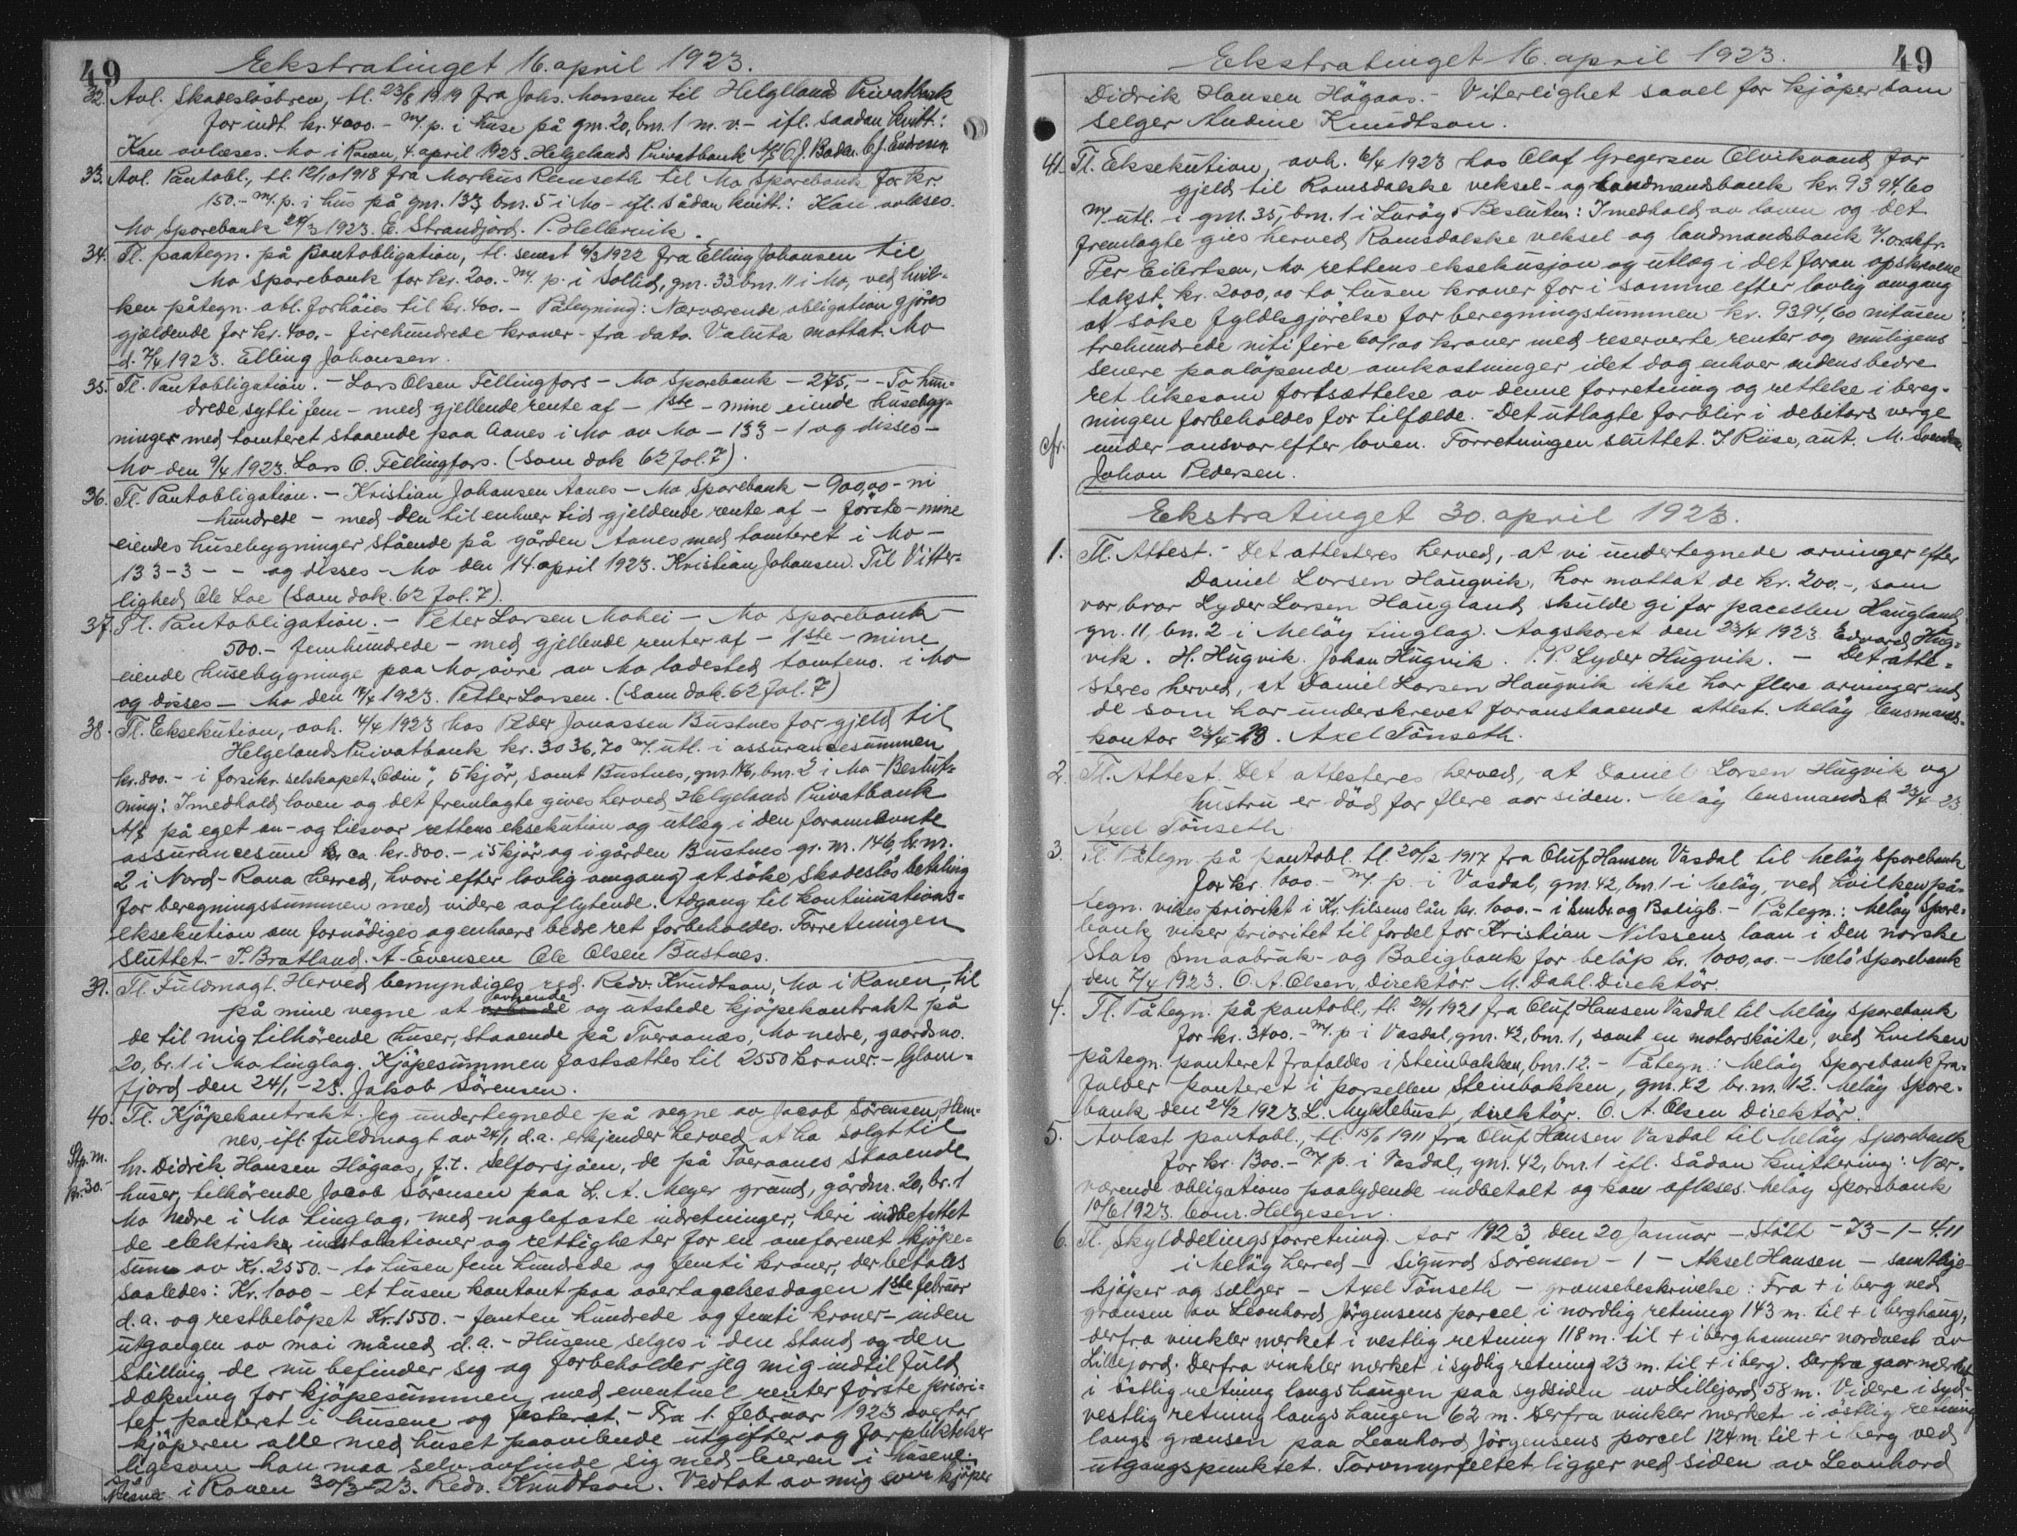 49
Ekstratinget 16. april 1923.
32. Avl. Skadesløsbrev, tl. 23/8 1919 fra Johs. Monsen til Helgeland Privatbank
for indt. kr. 4000.- m/ p. i huse på gnr. 20, bnr. 1 m. v. - ifl. saadan kvitt.:
Kan avlæses. Mo i Ranen, 4. april 1923. Helgelands Privatbank A/S
33. Avl. Pantobl., tl. 12/10 1918 fra Markus Remseth til Mo Sparebank for kr.
150.- m/ p. i hus på gnr. 133, bnr. 5 i Mo - ifl. sådan kvitt.: Kan avlæses.
Mo Sparebank 24/3 1923. E. Strandjord. P. Hellervik.
34. Tl. paategn. på pantobligation, tl. senest 6/3 1922 fra Elling Johansen til
Mo Sparebank for kr. 200.- m/ p. i Sollid, gnr. 33 bnr. 11 i Mo, ved hvil-
ken påtegn. obl. forhøies til kr. 400.- Påtegning: Nærværende obligation gjöres
gjældende for kr. 400.- firehundrede kroner - fra dato. Valuta mottat. Mo
d. 7/4 1923. Elling Johansen.
35. Tl. Pantobligation. - Lars Olsen Fellingfors - Mo Sparebank - 275,- - To hun-
drede sytti fem - med gjellende rente af - 1ste - mine eiende husebyg-
ninger med tomteret staaende paa Aanes i Mo av Mo - 133 - 1 og disses -
Mo den 9/4 1923. Lars O. Fellingfors. (Som dok 62 fol. 7).
36. Tl. Pantobligation. - Kristian Johansen Aanes - Mo Sparebank - 900,00 - ni
hundrede - med den til enhver tid gjeldende rente af - første - mine
eiendes husebygninger stående på gården Aanes med tomteret i Mo -
133 - 3 - - og disses - Mo den 14 april 1923. Kristian Johansen. Til Vitter-
lighed Ole Loe (Som dok. 62 fol. 7).
37. Tl. Pantobligation. - Peter Larsen Mohei - Mo Sparebank -
500.- femhundrede - med gjellende renter af - 1ste - mine
eiende husebygninge paa Mo, øvre av Mo ladested tomteno. i Mo
og disses - Mo den 14/4 1923. Petter Larsen. (Som dok. 62 fol. 7)
38. Tl. Eksekution, avh. 4/4 1923 hos Peder Jonassen Bustnes for gjeld til
Helgelands Privatbank kr. 3036,70 m/ utl. i assurancesummen
kr. 800.- i forsikr. selskapet "Odin", 5 kjør, samt Bustnes, gnr. 146, bnr. 2 i Mo - Beslut-
ning: I medhold loven og det fremlagte gives herved Helgelands Privatbank
A/S på eget an- og tilsvar rettens eksekution og utlæg i den forannævnte
assurancesum kr ca. kr. 800.- i 5 kjør og i gården Bustnes gr. nr. 146, br. nr.
2 i Nord-Rana herred, hvori efter lovlig omgang at søke skadesløs betaling
for beregningssummen med videre avflytende. Adgang til kontinuations-
eksekution om fornødiges og enhvers bedre ret forbeholdes. Forretningen
sluttet. - P. Bratland. A. Evensen Ole Olsen Bustnes.
39. Tl. Fuldmagt. Herved bemyndiges red. Redv. Knudtson, Mo i Ranen, til
avhende
på mine vegne at og utstede kjøpekontrakt på
de til mig tilhørende huser, staaende på Tveraanes, Mo nedre, gaardsno.
20, br. 1 i Mo tinglag. Kjøpesummen fastsættes til 2550 kroner. - Glom-
fjord den 24/1-23. Jakob Sørensen.
40. Tl. Kjøpekontrakt. Jeg undertegnede på vegne av Jacob Sørensen, Hem-
nes, ifl. fuldmagt av 24/1 d.a. erkjender herved at ha solgt til
Stp. m.
kr. 30.-
hr. Didrik Hansen Högaas, f. t. Selforsjöen, de på Tveraanes staaende
huser, tilhørende Jacob Sørensen paa L. A. Meyer grund, gårdnr. 20, br. 1
Mo nedre i Mo tinglag, med naglefaste indretninger, heri indbefattet
de elektriske installationer og rettigheter for en omforenet kjøpe-
sum av Kr. 2550.- to tusen fem hundrede og femti kroner, der betales
saaledes: Kr. 1000 - et tusen kontant paa overtagelsesdagen 1ste februar
d.a. og restbeløpet Kr. 1550.- femten hundrede og femti kroner - inden
utgangen av mai måned d.a. - Husene selges i den stand og den
stilling de nu befinder sig og forbeholder jeg mig indtil fuld
dækning for kjøpesummen med eventuel renter første priori-
tet panteret i husene og festeret. - Fra 1. februar 1923 overtar
kjøperen alle med huset paavilende utgifter og forpliktelser
likesom han maa selv avfinde sig med leieren i husene.
i Ranen 30/3-23. Redv. Knudtson. Vedtat av mig som kjøper
49
Ekstratinget 16. april 1923.
Didrik Hansen Högaas. - Viterlighet saavel for kjøper som
selger Andine Knudtson.
41. Tl. Eksekution, avh. 6/4 1923 hos Olaf Gregersen Olvikvand for
gjeld til Romsdalske veksel- og landmandsbank kr. 9394,60
m/ utl. i gnr. 35, bnr. 1 i Lurøy. Beslutn: I medhold av loven og det
fremlagte gies herved Romsdalske veksel og landmandsbank v/ orskfr.
Per Eilertsen, Mo rettens eksekusjon og utlæg i det foran opskrevne
takst kr. 2000,00 to tusen kroner for i samme efter lovlig omgang
at søke fyldestgjørelse for beregningssummen kr. 9394,60 nitusen
trehundrede nitifire 60/100 kroner med reserverte renter og muligens
senere paaløpende omkostninger idet dog enhver uidens bedre
ret likesom fortsættelse av denne forretning og rettelse i bereg-
ningen forbeholdes for tilfælde. Det utlagte forblir i debitors verge
cfr. under ansvar efter loven. Forretningen sluttet. J. Riise, aut. M.
Johan Pedersen.
Ekstratinget 30. april 1923.
1. Tl. Attest. - Det attesteres herved, at vi undertegnede arvinger efter
Daniel Larsen Haugvik, har mottat de kr. 200.-, som
vor bror Lyder Larsen Haugland skulde gi for parcellen Haugland,
gn. 11, bn. 2 i Meløy tinglag. Aagskaret den 23/4 1923. Edvard Hug-
vik. H. Hugvik. Johan Hugvik. P. P. Lyder Hugvik. - Det atte-
steres herved, at Daniel Larsen Haugvik ikke har flere arvinger end
de som har underskrevet foranstaaende attest. Meløy lensmands-
kontor 23/4-23. Axel Tönseth.
2. Tl. Attest. Det attesteres herved, at Daniel Larsen Hugvik og
hustru er död for flere aar siden. Meløy lensmandsk. 23/4-23
Axel Tönseth
3. Tl. Påtegn. på pantobl. tl. 20/2 1917 fra Oluf Hansen Vasdal til Meløy Sparebank
for kr. 1000.- m/ p. i Vasdal, gnr. 42, bnr. 1 i Meløy, ved hvilken på-
tegn. vikes prioritet i Kr. Nilsens lån kr. 1000.- i Småbr. og Boligb. - Påtegn.: Meløy Spare-
bank viker prioritet til fordel for Kristian Nilssens laan i Den norske
Stats Smaabruk- og Boligbank for beløp kr. 1000,00. - Melö Sparebank
den 7/4 1923. O. A. Olsen, Direktör. M. Dahl. Direktör.
4. Tl. Påtegn. på pantobl., tl. 24/1 1921 fra Oluf Hansen Vasdal til Meløy Sparebank
for kr. 3400.- m/ p. i Vasdal, gnr. 42, bnr. 1, samt en motorskøite, ved hvilken
påtegn. panteret frafaldes i Steinbakken, bnr. 12. - Påtegn: Meløy Sparebank fra-
falder panteret i parsellen Steinbakken, gnr. 42 br. nr. 12. Meløy Spare-
bank den 24/2 1923. L. Myklebust, direktör. O. A. Olsen Direktör.
5. Avlæst pantobl., tl. 15/6 1911 fra Oluf Hansen Vasdal til Meløy Sparebank
for kr. 1300.- m/ p. i Vasdal, gnr. 42, bnr. 1 ifl. sådan kvittering: Nær-
værende obligations paalydende indbetalt og kan aflæses. Meløy Sparebank
10/6 1923. Conr. Helgesen.
6. Tl. Skylddelingsforretning. Aar 1923 den 20 Januar - Støtt - 73 - 1 - 4.11
i Meløy herred - Sigurd Sørensen - 1 - Aksel Hansen - samtlige -
kjøper og sælger - Axel Tönseth - grænsebeskrivelse: Fra + i berg ved
grænsen av Leonhard Jørgensens parcel i nordlig retning 143 m. til + i berghaug,
derfra vinkler merket i vestlig retning 118 m. til + i berghammer nordvest av
Lillejord. Derfra vinkler merket i sydlig retning 23 m. til + i berg. Derfra gaar merket
i østlig retning langs haugen paa sydsiden av Lillejord 58 m. Videre i syd-
vestlig retning langs haugen 62 m. Derfra vinkler merket i østlig retning
langs grænsen paa Leonhard Jørgensens parcel 124 m til + i berg ved
utgangspunktet. Torvmyrfeltet ligger ved siden av Leonhard